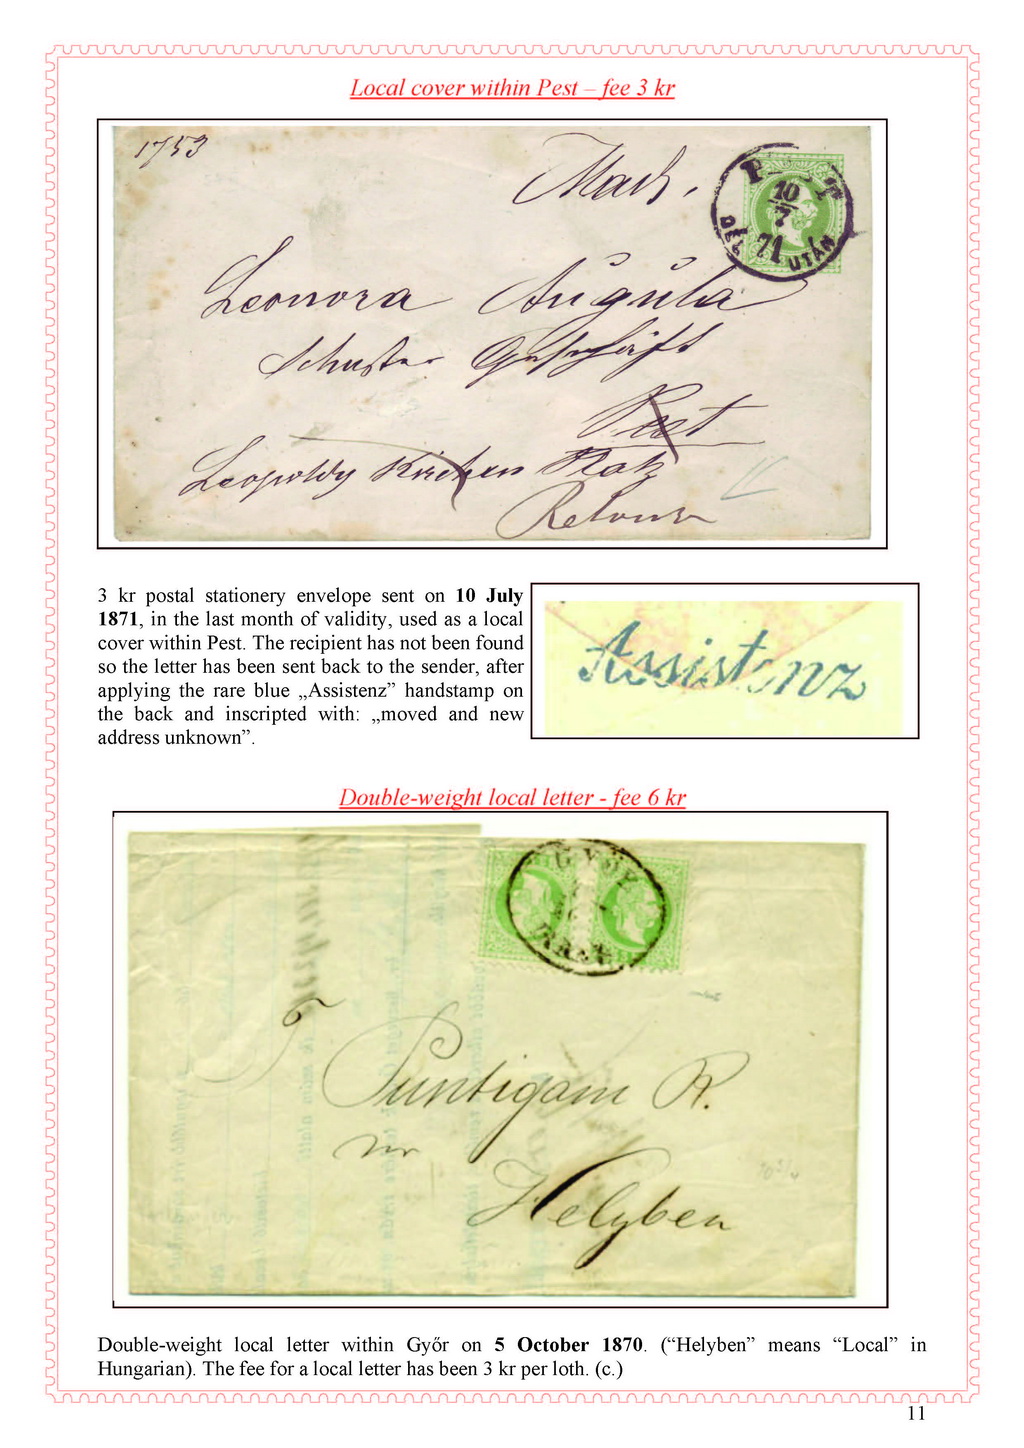 Local cover within Pest – fee 3 kr
1753
P T
10
7
71
DÉL UTÁN
Leonora Augula
Schuster Geschäft
Pest
Leopoldy Kirchen Platz
Retour
3 kr postal stationery envelope sent on 10 July
1871, in the last month of validity, used as a local
cover within Pest. The recipient has not been found
so the letter has been sent back to the sender, after
applying the rare blue „Assistenz” handstamp on
the back and inscripted with: „moved and new
address unknown”.
Assistenz
Double-weight local letter - fee 6 kr
GYŐR
RAAB
T
Puntigam R.
Helyben
Double-weight local letter within Győr on 5 October 1870. (“Helyben” means “Local” in
Hungarian). The fee for a local letter has been 3 kr per loth. (c.)
11